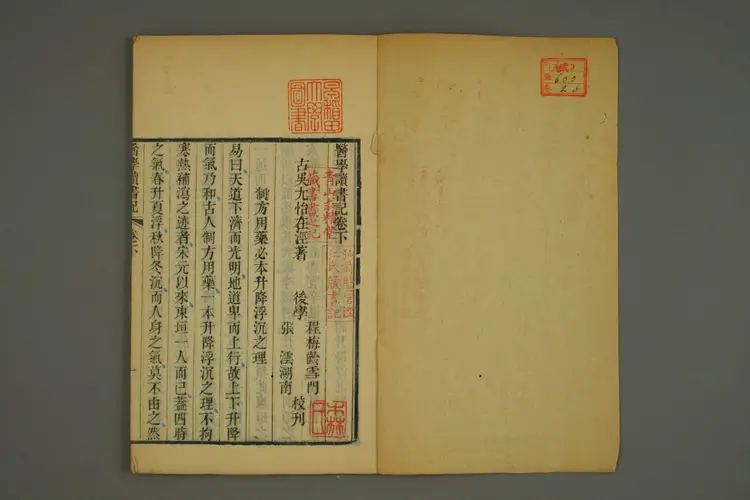 醫學讀書記卷下
古吳尤怡在涇著
後學
程梅齡雪門
張 澐湖南
校刊
制方用藥必本升降浮沉之理
易曰天道下濟而光明地道卑而上行故上下升降
而氣乃和古人制方用藥一本升降浮沉之理不拘
寒熱補瀉之迹者宋元以來東垣一人而已蓋四時
之氣春升夏浮秋降冬沉而人身之氣莫不由之然
醫學讀書記
卷下
一
早稻田大學圖書
藏書畫之記